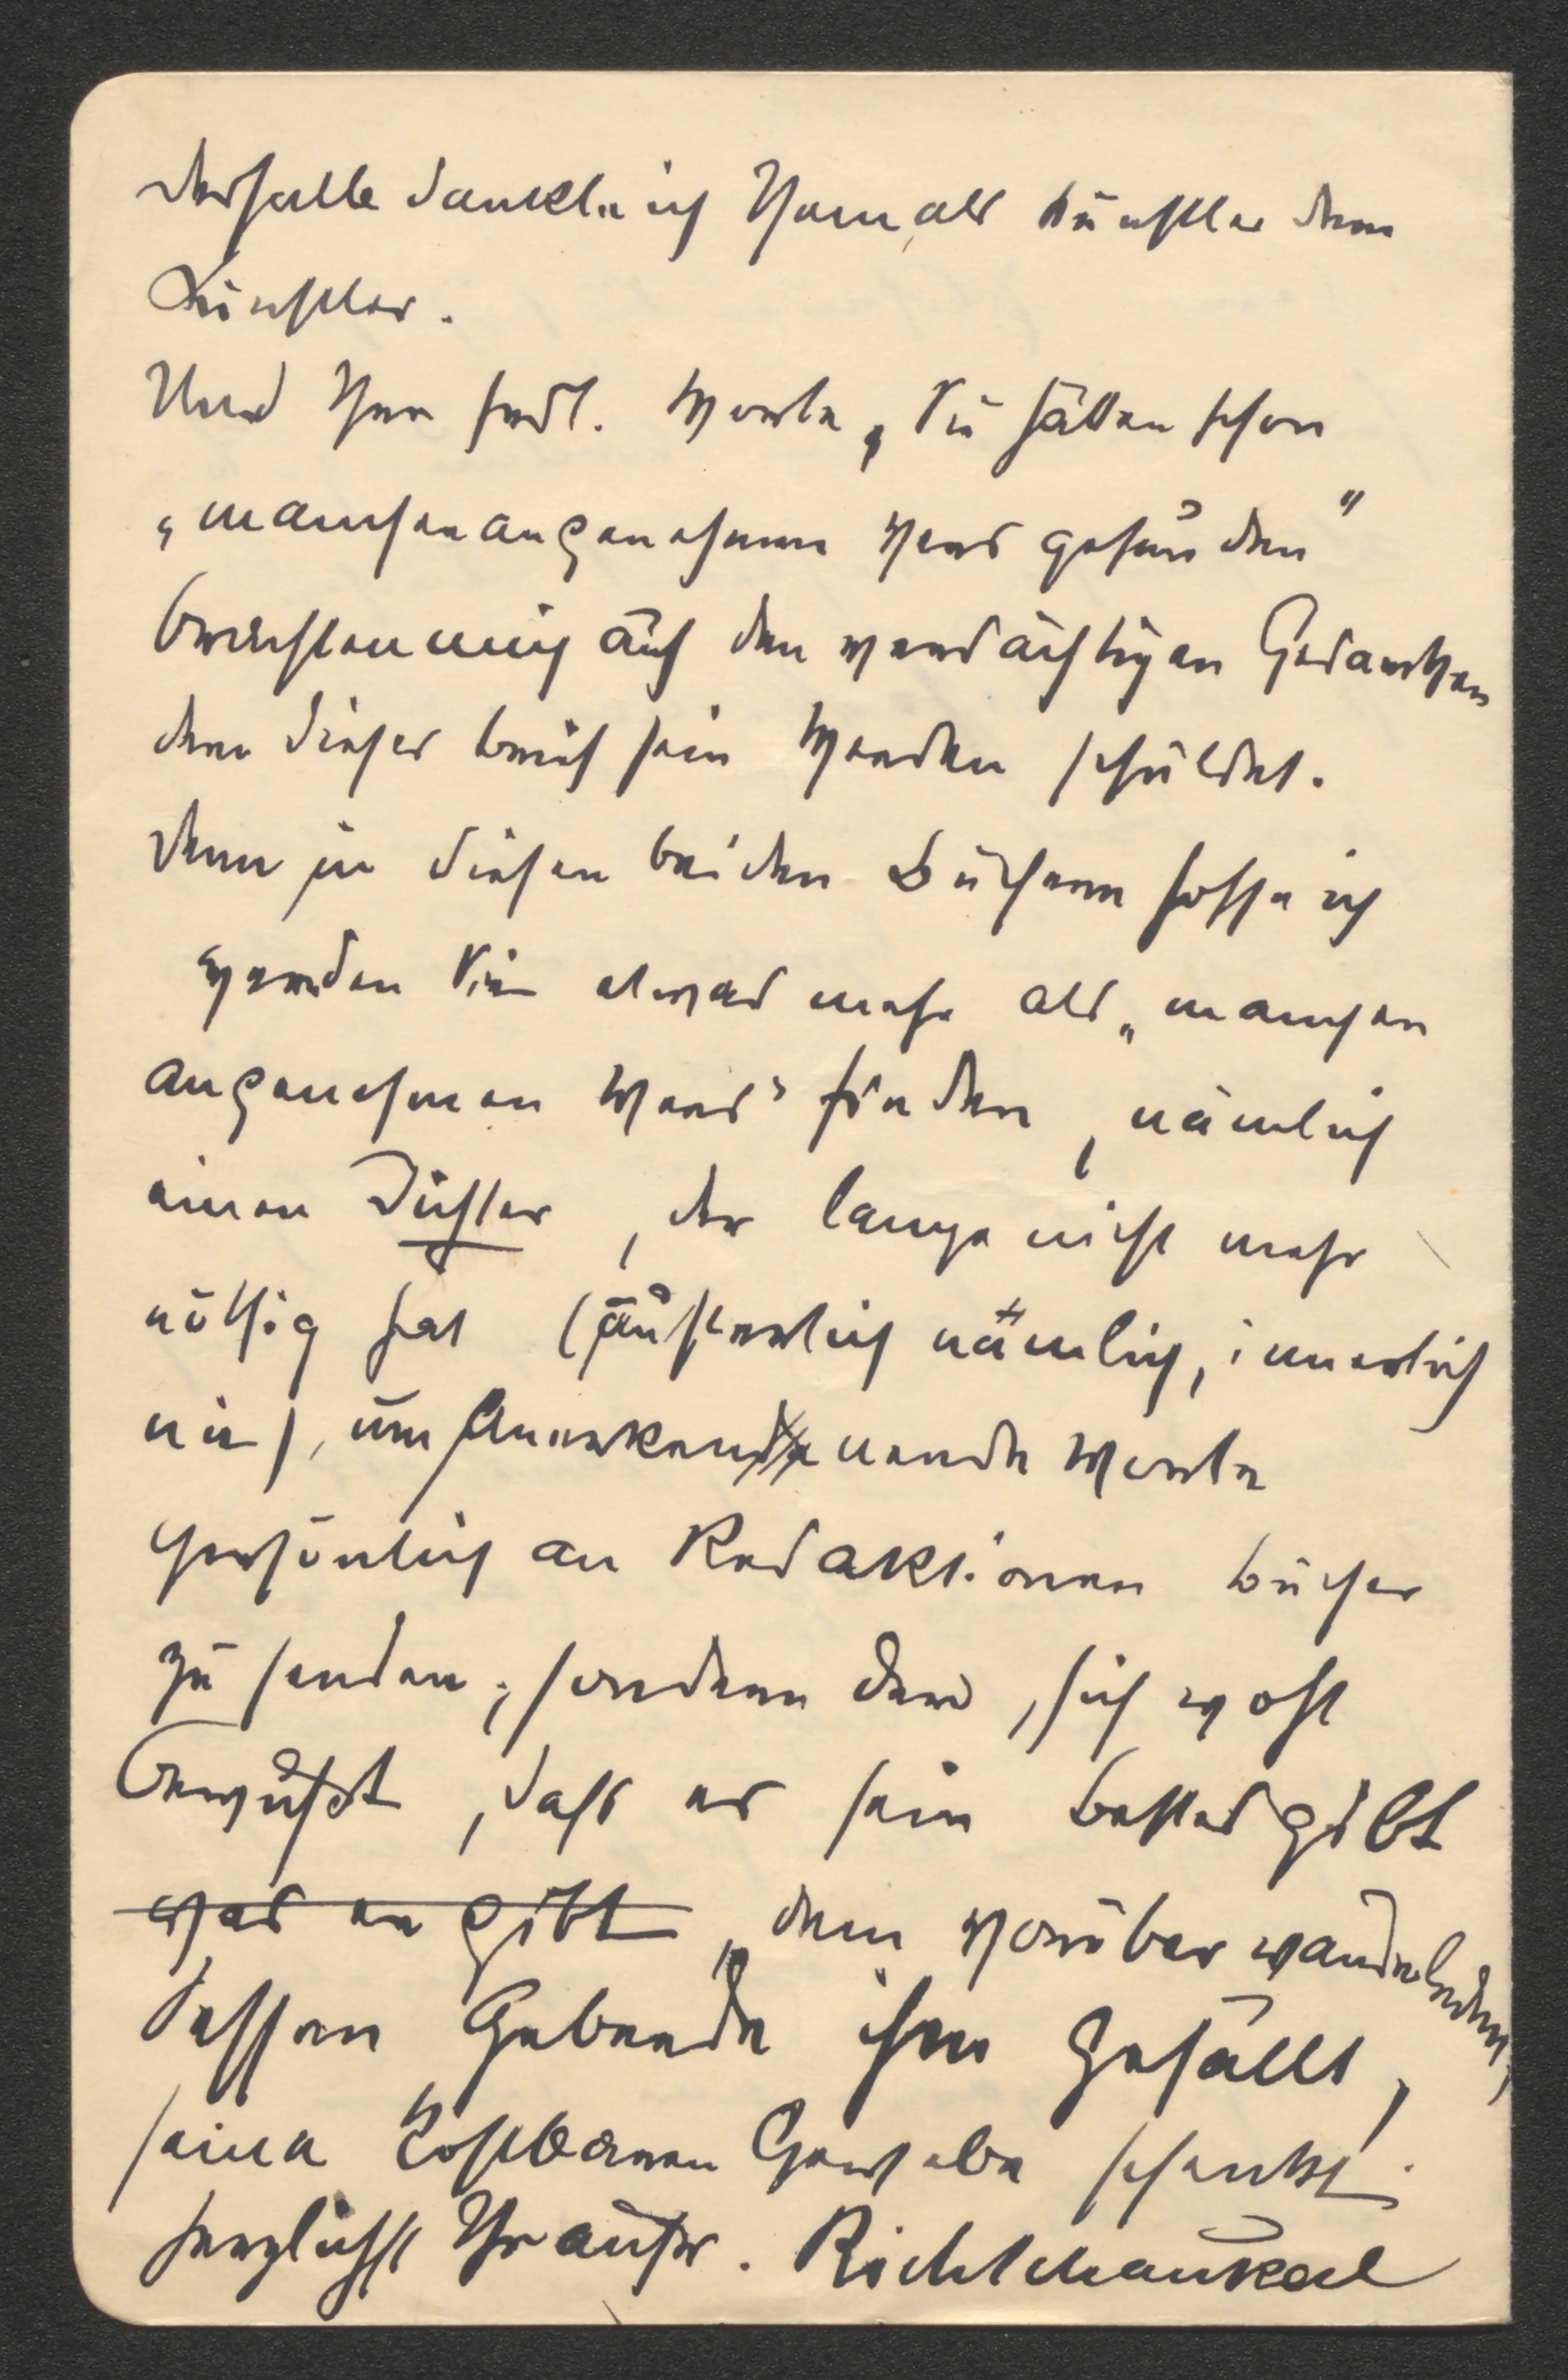 Deshalb dankte ich Ihnen, als Künstler dem
Künstler.
Und Ihre frdl. Worte, Sie hätten schon
„manchen angenehmen Vers gefunden"
brachten mich auf den verdächtigen Gedanken
dem dieser Brief sein Werden schuldet.
Denn in diesen beiden Büchern hoffe ich
werden Sie etwas mehr als „manchen
angenehmen Vers" finden, nämlich
einen Dichter, der lange nicht mehr
nöthig hat (äußerlich nämlich, innerlich
nie), um anerkennende Worte
persönlich an Redaktionen Bücher
zu senden, sondern der, sich wohl
bewußt, daß er sein Bestes gibt
was er gibt, dem Vorüberwandelnden,
dessen Geberde ihm gefällt,
seine kostbaren Gewebe schenkt.
Herzlichst Ihr aufr. Richard Schaukal